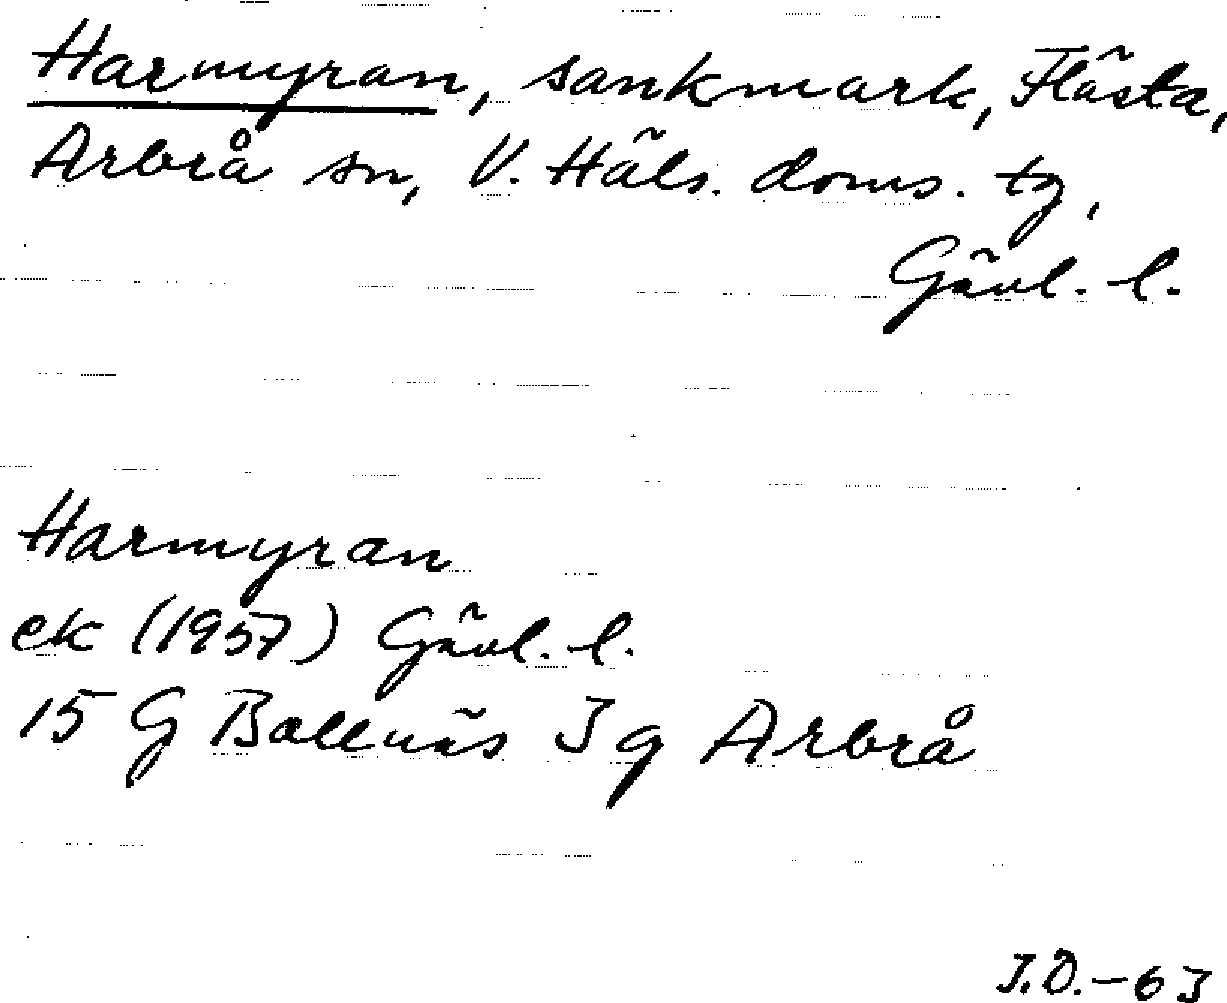 Harmyran, sankmark, Flästa,
Arbrå sn, V. Häls. doms. tg,
Gävl. l.
Harmyran
ek (1957) Gävl. l.
15 G Bollnäs 3 g Arbrå
J.Ö.-63